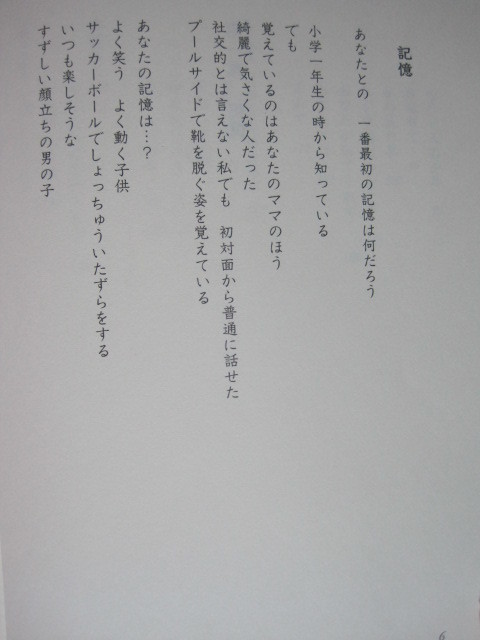 記憶
あなたとの　一番最初の記憶は何だろう
小学一年生の時から知っている
でも
覚えているのはあなたのママのほう
綺麗で気さくな人だった
社交的とは言えない私でも　初対面から普通に話せた
プールサイドで靴を脱ぐ姿を覚えている
あなたの記憶は…?
よく笑う　よく動く子供
サッカーボールでしょっちゅういたずらをする
いつも楽しそうな
すずしい顔立ちの男の子
6